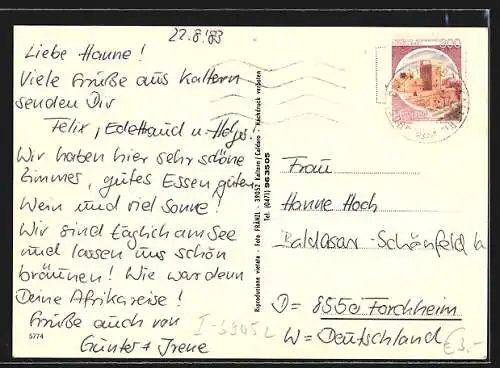 22.8.'83
Liebe Hanne!
Viele Grüße aus Kaltern
senden Dir
Felix, u. Helga.
Wir haben hier sehr schöne
Zimmer, gutes Essen guten
Wein und viel Sonne!
Wir sind täglich am See
und lassen uns schön
bräunen! Wie war denn
Deine Afrikareise!
Grüße auch von
Günter + Irene
5774
Riproduzione vietata - Foto FRÄNZL - 39052 Kaltern/Caldaro - Nachdruck verboten
Tel. (0471) 963505
800
Frau
Hanne Hoch
Baldasar-Schönfeld
D= 8550 Forchheim
W= Deutschland
I-39052
€3,-